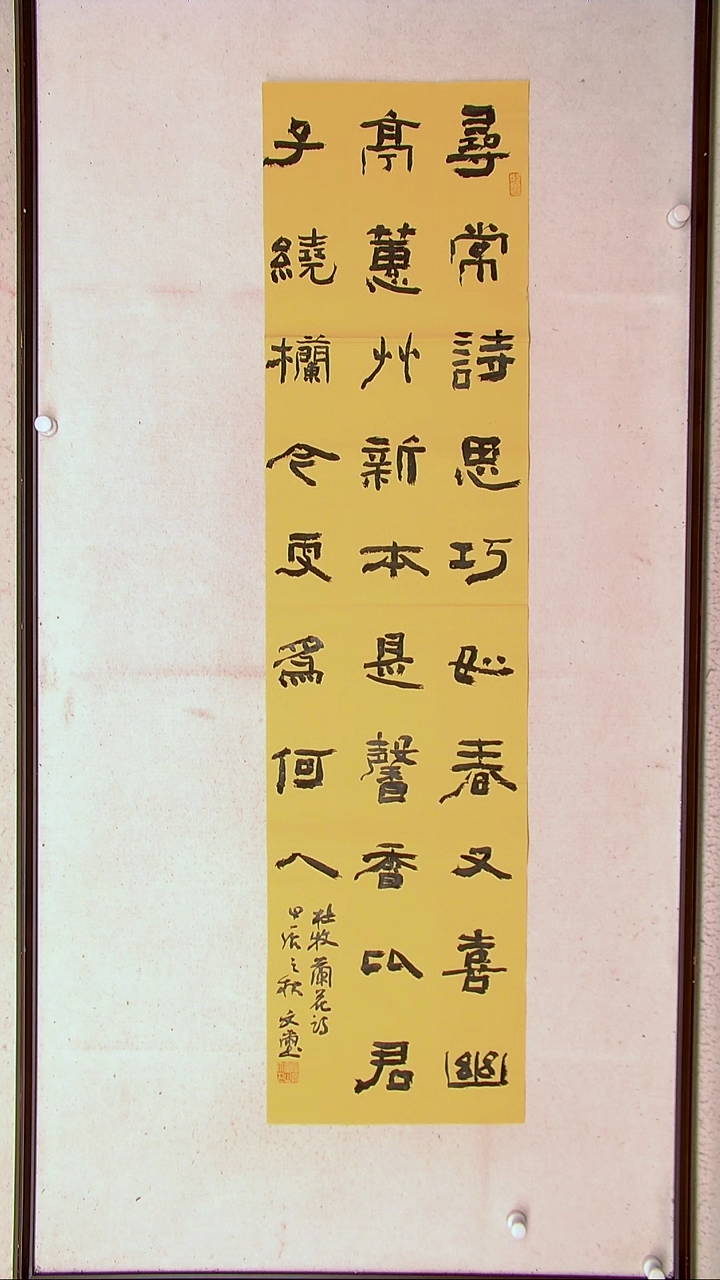 尋常詩思巧如春又喜幽
亭蕙艸新本是馨香以君
子繞欄今更為何人
杜牧蘭花詩
甲辰之秋文